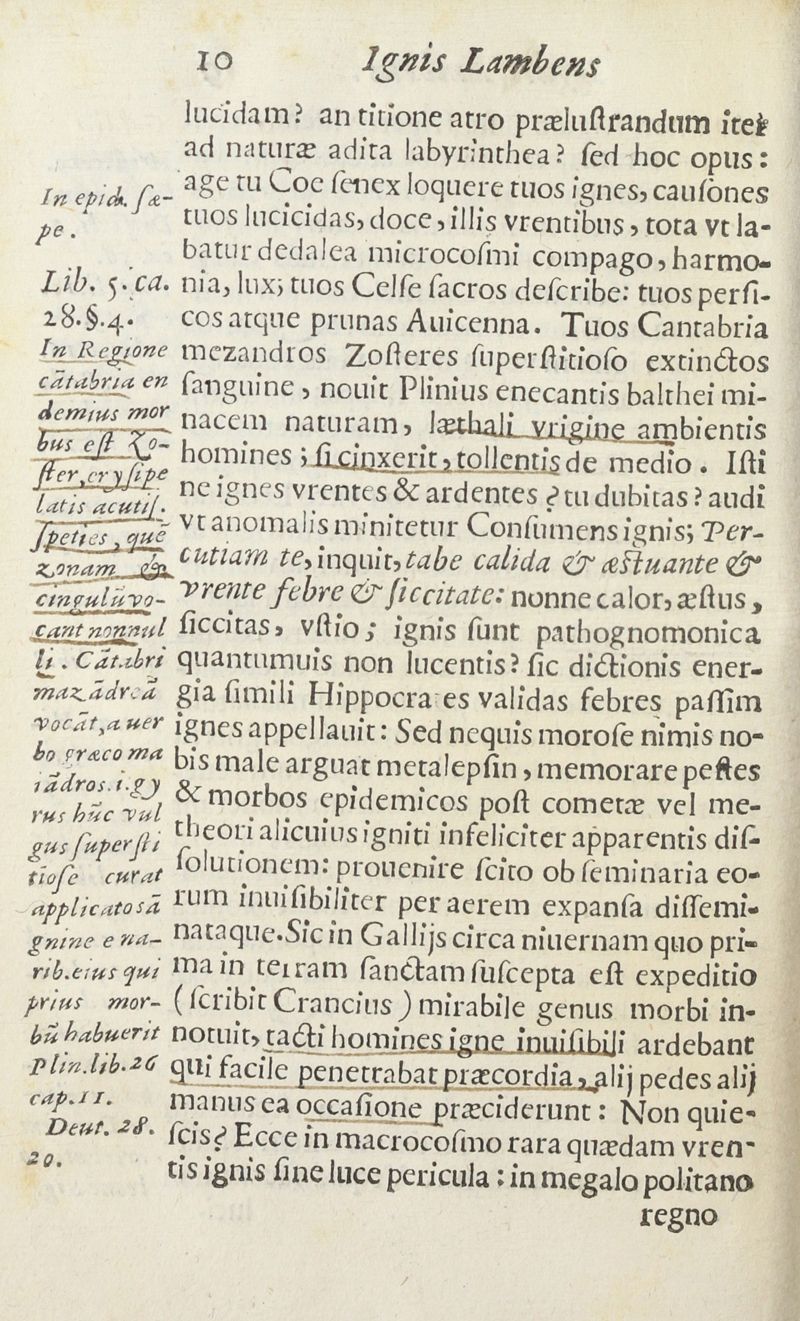 10 Ignis Lambens
lucidam? an titione atro præluſtrandum iter
ad naturæ adita labyrinthea? ſed hoc opus:
age tu Coe ſenex loquere tuos ignes, cauſones
tuos lucicidas, doce, illis vrentibus, tota vt la-
batur dedalea microcoſmi compago, harmo-
nia, lux; tuos Celſe ſacros deſcribe: tuos perſi-
cos atque prunas Auicenna. Tuos Cantabria
mezandros Zoſteres ſuperſtitioſo extinctos
ſanguine, nouit Plinius enecantis balthei mi-
nacem naturam, læthali vrigine ambientis
homines; ſi cinxerit, tollentis de medio. Iſti
ne ignes vrentes & ardentes? tu dubitas? audi
vt anomalis minitetur Conſumens ignis; Per-
cutiam te, inquit, tabe calida & æſtuante &
vrente febre & ſiccitate: nonne calor, æſtus,
ſiccitas, vſtio; ignis ſunt pathognomonica
quantumuis non lucentis? ſic dictionis ener-
gia ſimili Hippocra es validas febres paſſim
ignes appellauit: Sed nequis moroſe nimis no-
bis male arguat metalepſin, memorare peſtes
& morbos epidemicos poſt cometæ vel me-
theori alicuius igniti infeliciter apparentis diſ-
ſolutionem: prouenire ſcito ob ſeminaria eo-
rum inuiſibiliter per aerem expanſa diſſemi-
nataque. Sic in Gallijs circa niuernam quo pri-
ma in terram ſanctam ſuſcepta eſt expeditio
(ſcribit Crancius) mirabile genus morbi in-
notuit, tacti homines igne inuiſibili ardebant
qui facile penetrabat præcordia, alij pedes alij
manus ea occaſione præciderunt: Non quie-
ſcis? Ecce in macrocoſmo rara quædam vren-
tis ignis ſine luce pericula: in megalo politano
regno
In epid. ſæ-
pe.
Lib. 5. ca.
28.§.4.
In Regione
cātabria en
demius mor
bus eſt Zo-
ſter, eryſipe
latis acutiſ.
ſpeties, quē
zonam &
cingulū vo-
cant nonnul
li. Cātabri
mazādrea
vocāt, a uer
bo græco ma
iādros. i. gy
rus hūc vul
gus ſuperſti
tioſe curat
applicato sā
gnine e na-
rib. eius qui
prius mor-
bū habuerit
Plin. lib. 26
cap. 11.
Deut. 28.
20.